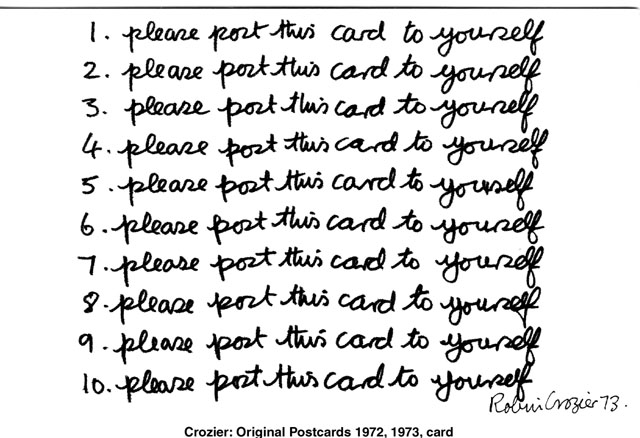 1. please post this card to yourself
2. please post this card to yourself
3. please post this card to yourself
4. please post this card to yourself
5. please post this card to yourself
6. please post this card to yourself
7. please post this card to yourself
8. please post this card to yourself
9. please post this card to yourself
10. please post this card to yourself
Robin Crozier 73.
Crozier: Original Postcards 1972, 1973, card